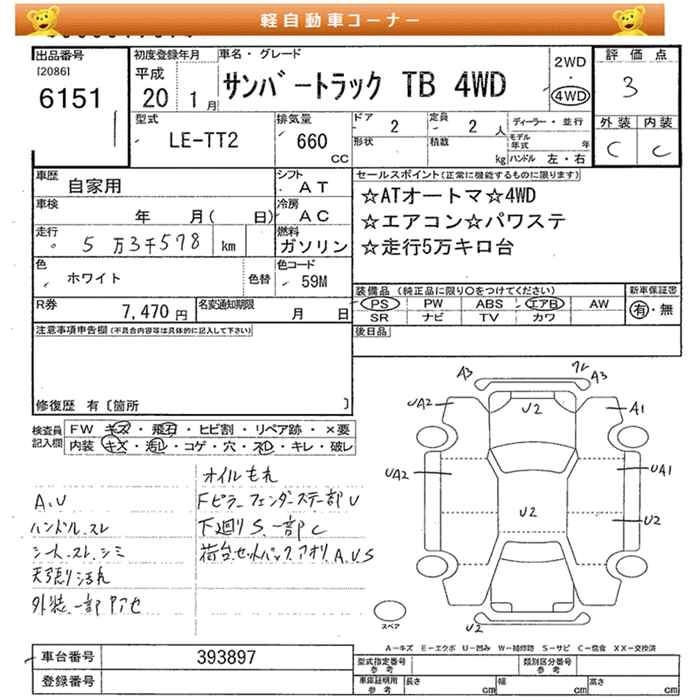 軽自動車コーナー
出品番号
[2086]
6151
初度登録年月
平成
20 1月
車名・グレード
サンバートラック TB 4WD
2WD
・
4WD
評価点
3
外装 内装
C C
型式
LE-TT2
排気量
660
CC
ドア
2
形状
定員
2 人
積載
kg
ディーラー・並行
モデル年式 年
ハンドル 左・右
車歴
自家用
シフト
AT
車検
年 月( 日)
冷房
AC
走行
5万3千578 km
燃料
ガソリン
色
ホワイト
色替
色コード
59M
R券
7,470円
名変通知期限
月 日
セールスポイント(正常に機能するものに限ります)
☆ATオートマ☆4WD
☆エアコン☆パワステ
☆走行5万キロ台
装備品(純正品に限り○をつけてください)
PS PW ABS エアB AW
SR ナビ TV カワ
新車保証書
有・無
後日品
注意事項申告欄(不具合内容等は具体的に記入して下さい)
修復歴 有〔箇所 〕
検査員記入欄
FW キズ・飛石・ヒビ割・リペア跡・×要
内装 キズ・汚レ・コゲ・穴・スレ・キレ・破レ
オイルもれ
A.U
Fピラーフェンダーステー部U
ハンドルスレ
下廻りS.一部C
シートスレ.シミ
荷台.セットバック.アオリA.U.S
天張り汚れ
外装一部アアセ
A3
A3
UA2
U2
A1
UA2
UA1
U2
U2
スペア
U2
A-キズ E-エクボ U-凹み W-補修跡 S-サビ C-腐食 XX-交換済
車台番号
393897
登録番号
型式指定番号
参考
類別区分番号
参考
車庫証明用
参考
長さ cm 幅 cm 高さ cm